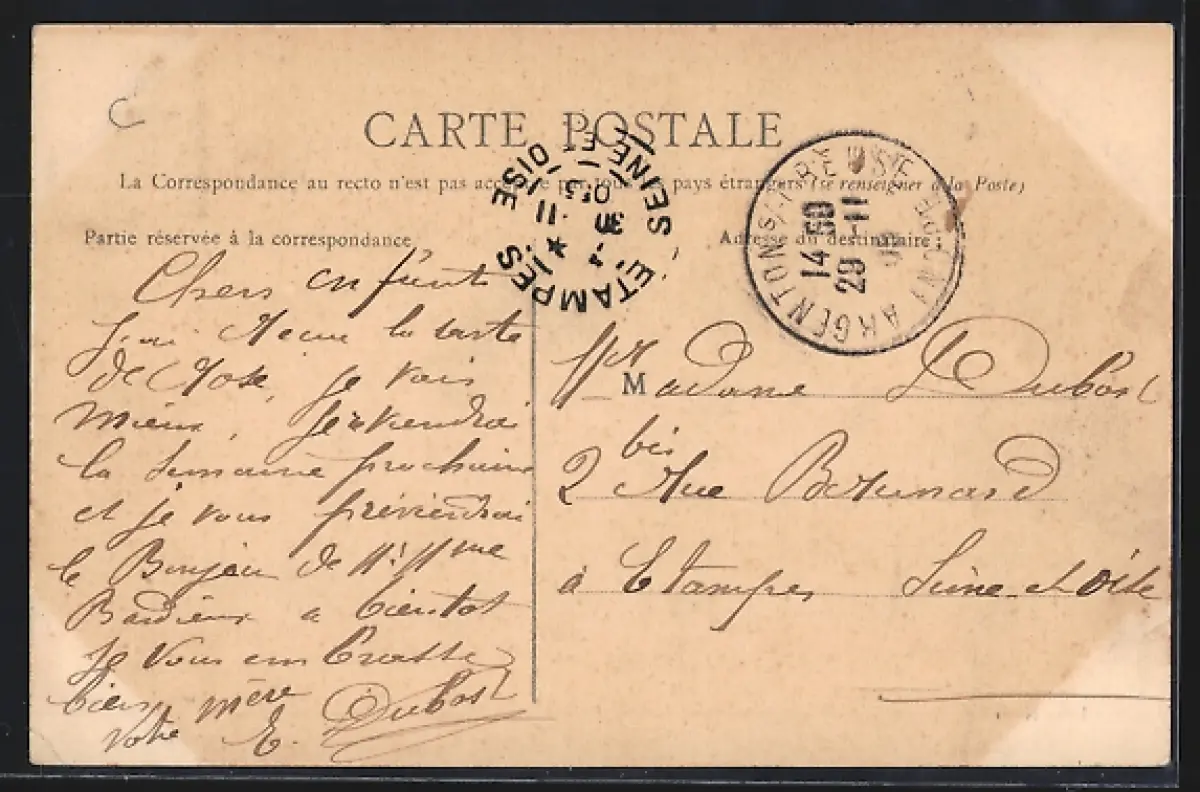 C
CARTE POSTALE
La Correspondance au recto n'est pas acceptée par tous les pays étrangers (se renseigner à la Poste)
Partie réservée à la correspondance
Adresse du destinataire
ETAMPES
SEINE ET OISE
30 -11
05
ARGENTON S/CREUSE
14 50
29 -11
05
Chers enfants
J'ai recue la carte
de Rose, je vais
mieux, je viendrai
la semaine prochaine
et je vous préviendrai
le Bonjour de M. Mme
Bardieux a bientot
je vous embrasse
bien
votre mère
E. Dubost
Mr Madame Dubost
2 bis Rue
à Etampes Seine et Oise